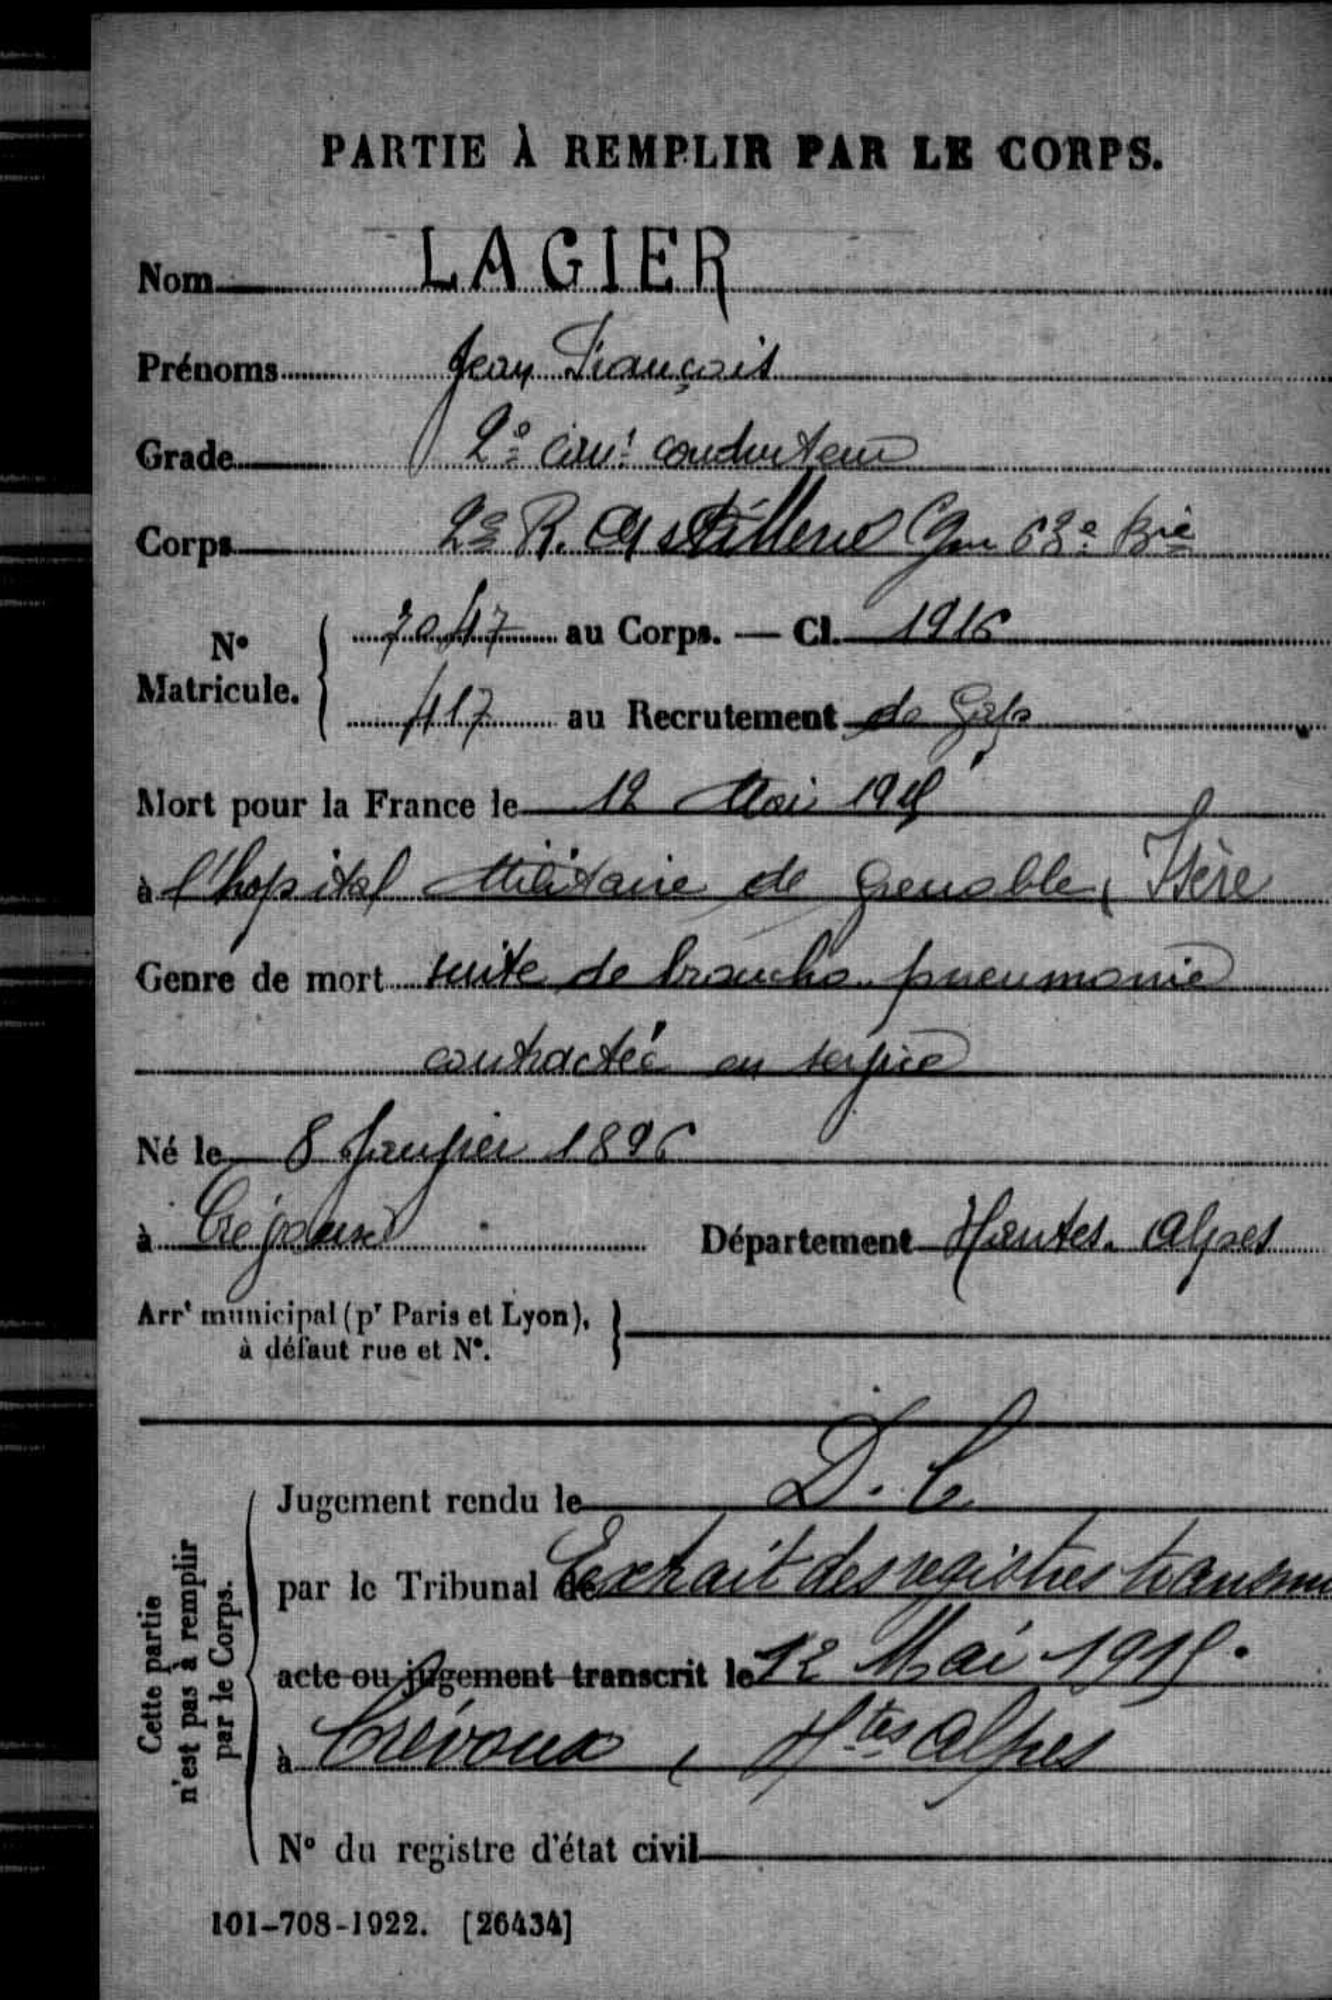 PARTIE À REMPLIR PAR LE CORPS.
Nom LAGIER
Prénoms Jean François
Grade 2e cant conducteur
Corps 2e R. Artillerie 63e Brie
No Matricule. 7047 au Corps. — Cl. 1916
417 au Recrutement de Gap
Mort pour la France le 12 Mai 1915
à l'hopital Militaire de Grenoble, Isère
Genre de mort suite de broncho-pneumonie
contractée en service
Né le 8 Janvier 1896
à Crévoux Département Hautes-Alpes
Arrt municipal (pr Paris et Lyon),
à défaut rue et No.
Cette partie
n'est pas à remplir
par le Corps.
Jugement rendu le D. C
par le Tribunal de Extrait des registres transmis
acte ou jugement transcrit le 12 Mai 1915.
à Crévoux, Htes Alpes
No du registre d'état civil
101-708-1922. [26434]